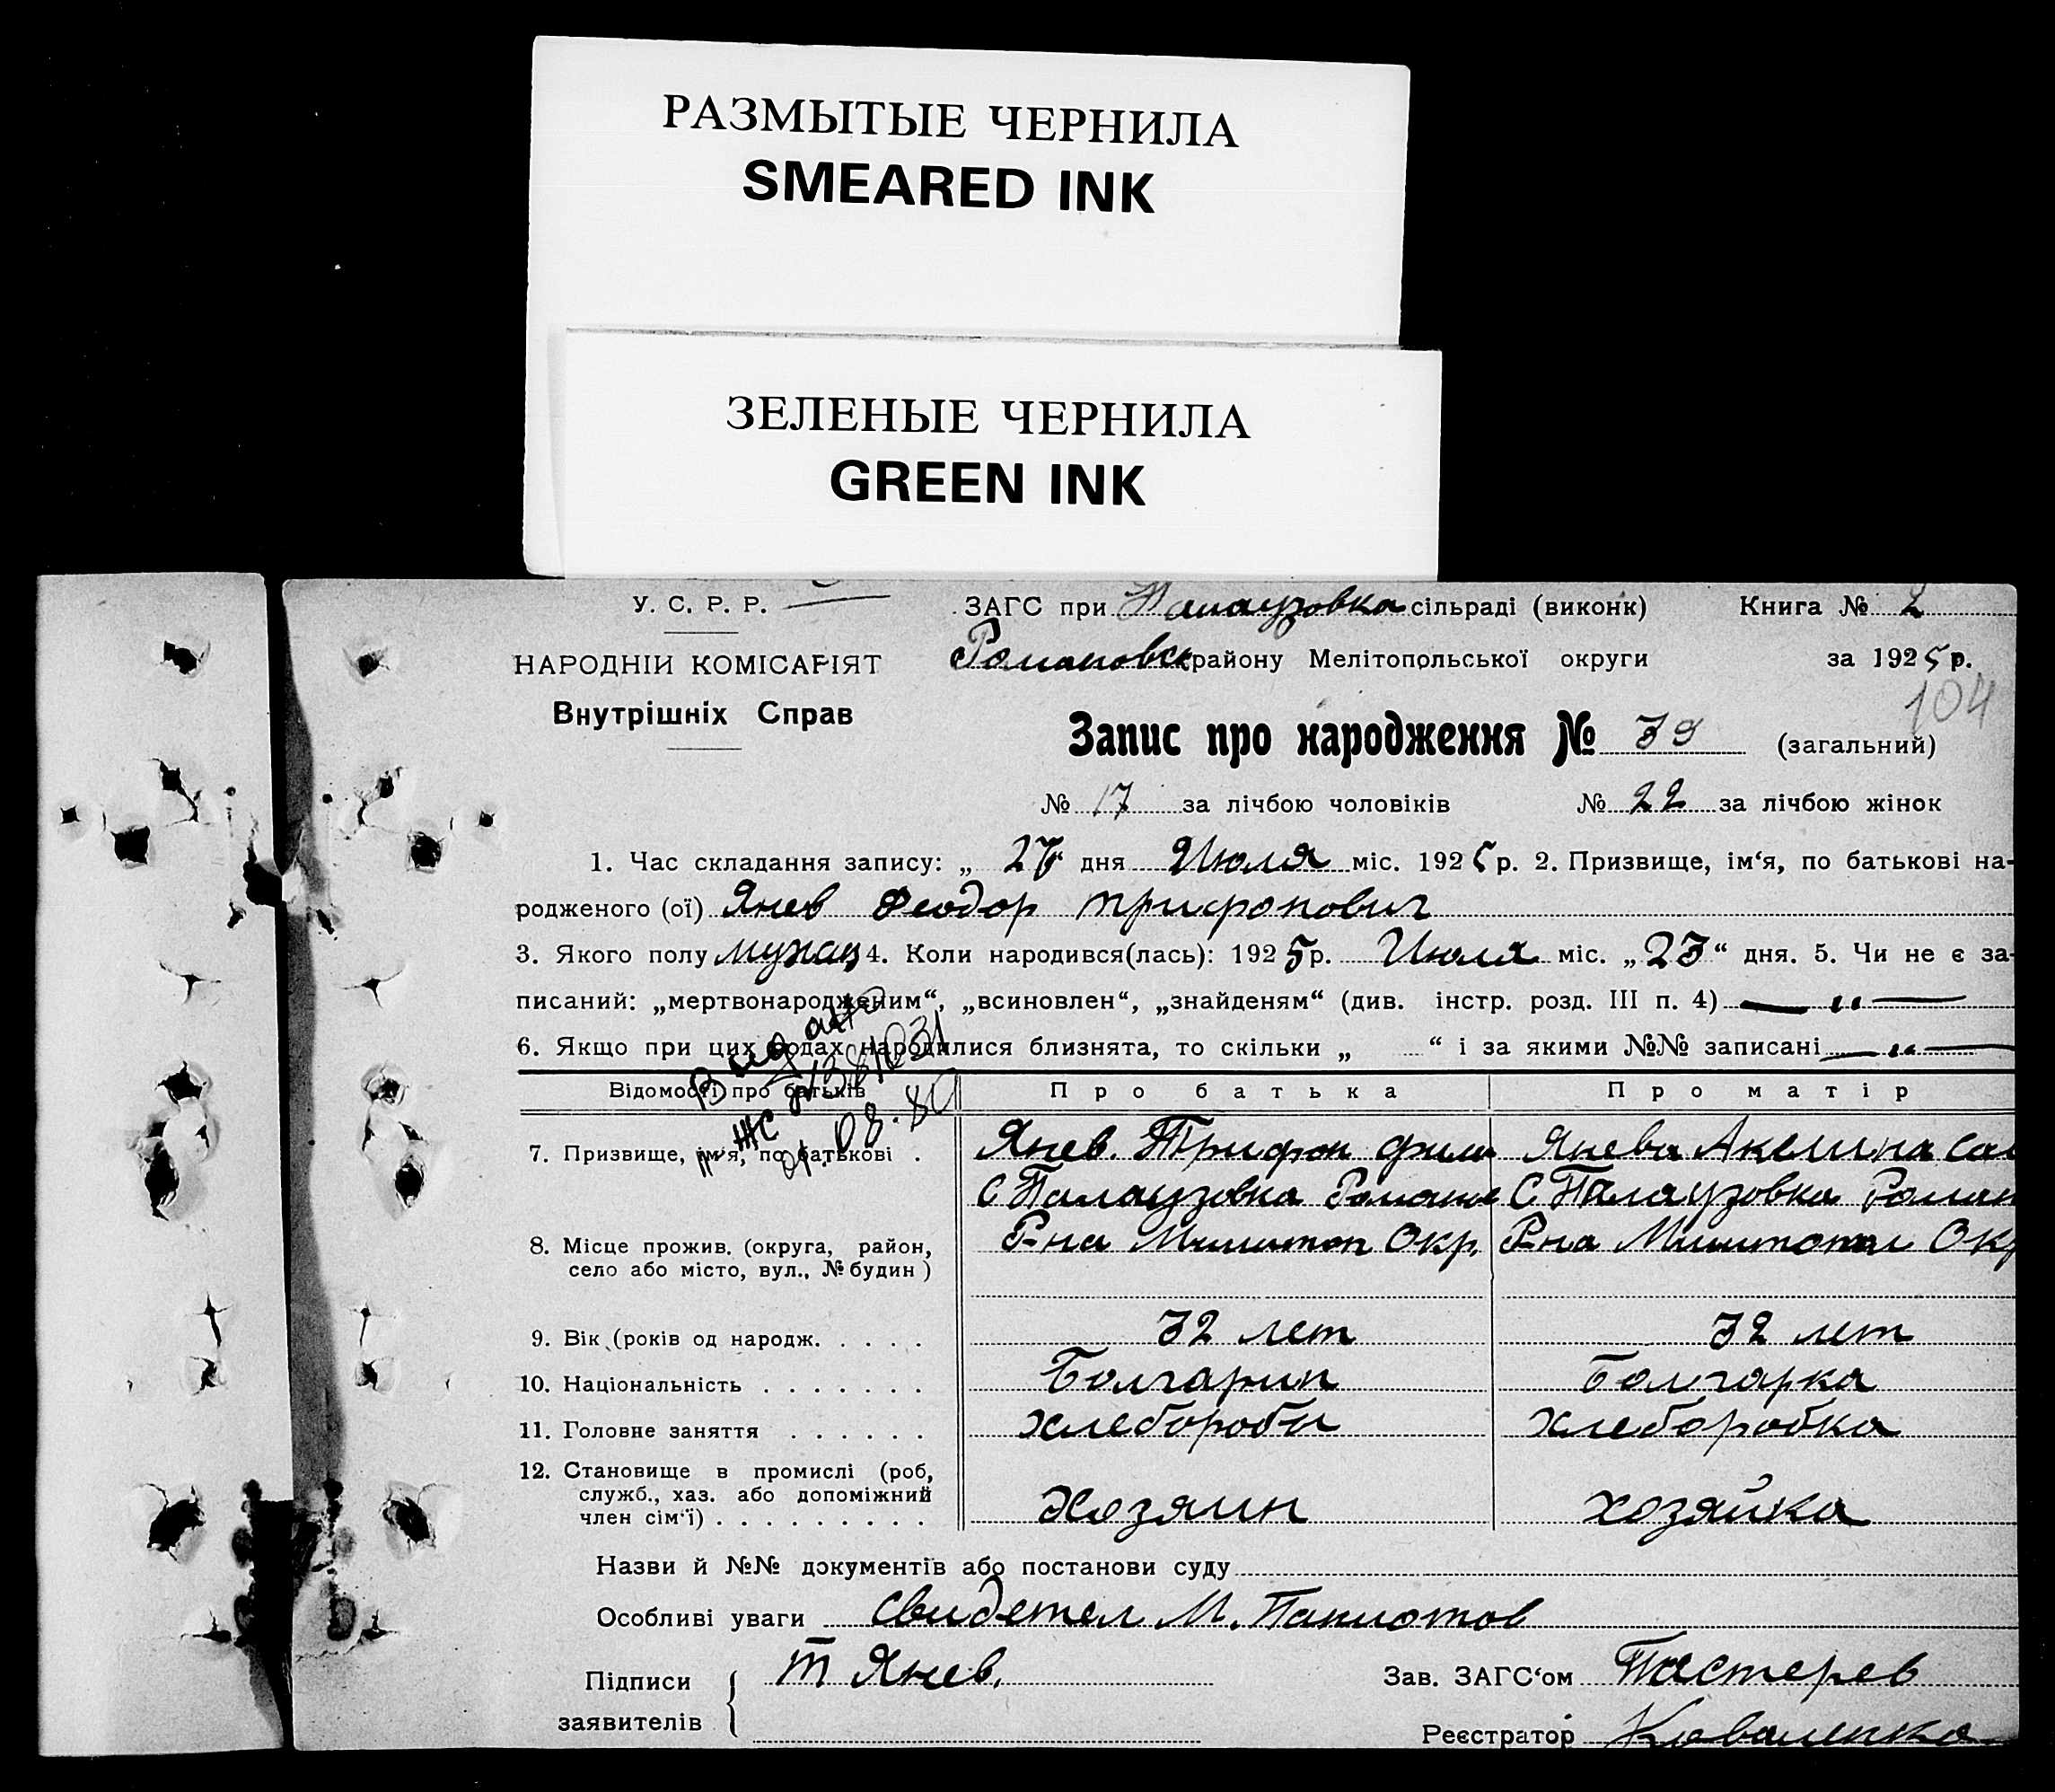 РАЗМЫТЫЕ ЧЕРНИЛА
SMEARED INK
ЗЕЛЕНЫЕ ЧЕРНИЛА
GREEN INK
У. С. Р. Р.
ЗАГС при Палаузовка сільраді (виконк) Книга № 2
НАРОДНІЙ КОМІСАРІЯТ
Романовск району Мелітопольської округи за 1925 р.
104
Внутрішніх Справ
Запис про народження № 39 (загальний)
№ 17 за лічбою чоловіків № 22 за лічбою жінок
1. Час складання запису: „ 27 “ дня Июля міс. 1925 р. 2. Призвище, ім‘я, по батькові на-
родженого (ої) Янев Феодор Трифонович
3. Якого полу мужск 4. Коли народився(лась): 1925 р. Июля міс. „23“ дня. 5. Чи не є за-
писаний: „мертвонародженим“, „всиновлен“, „знайденям“ (див. інстр. розд. III п. 4) — „ —
6. Якщо при цих родах народилися близнята, то скільки „ “ і за якими №№ записані — „ —
Видано
ЖС
01.08.80
Відомості про батьків Про батька Про матір
7. Призвище, ім‘я, по батькові . Янев. Трифон Фили Янева Акелина Сав
С Палаузовка Романов С Палаузовка Роман
8. Місце прожив. (округа, район,
село або місто, вул., № будин)
Р-на Мелитоп Окр. Р-на Мелитопол Окр
9. Вік (років од народж. . . . . 32 лет 32 лет
10. Національність . . . . . . . Болгарин Болгарка
11. Головне заняття . . . . . . хлебороби хлеборобка
12. Становище в промислі (роб,
служб., хаз. або допоміжний
член сім‘ї) . . . . . . . . . Хозяин хозяйка
Назви й №№ документів або постанови суду
Особливі уваги свидетел М. Паниотов
Підписи
заявителів
Т Янев.
Зав. ЗАГС‘ом Пастерев
Реєстратор Коваленко